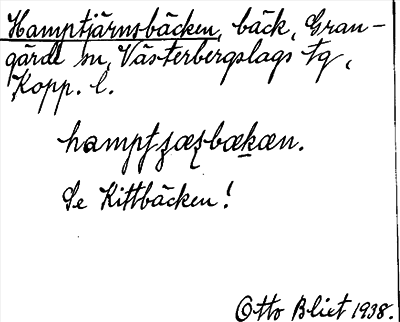 Hamptjärnsbäcken, bäck, Gran-
gärde sn, Västerbergslags tg,
Kopp. l.
Se Kittbäcken!
Otto Blixt 1938.